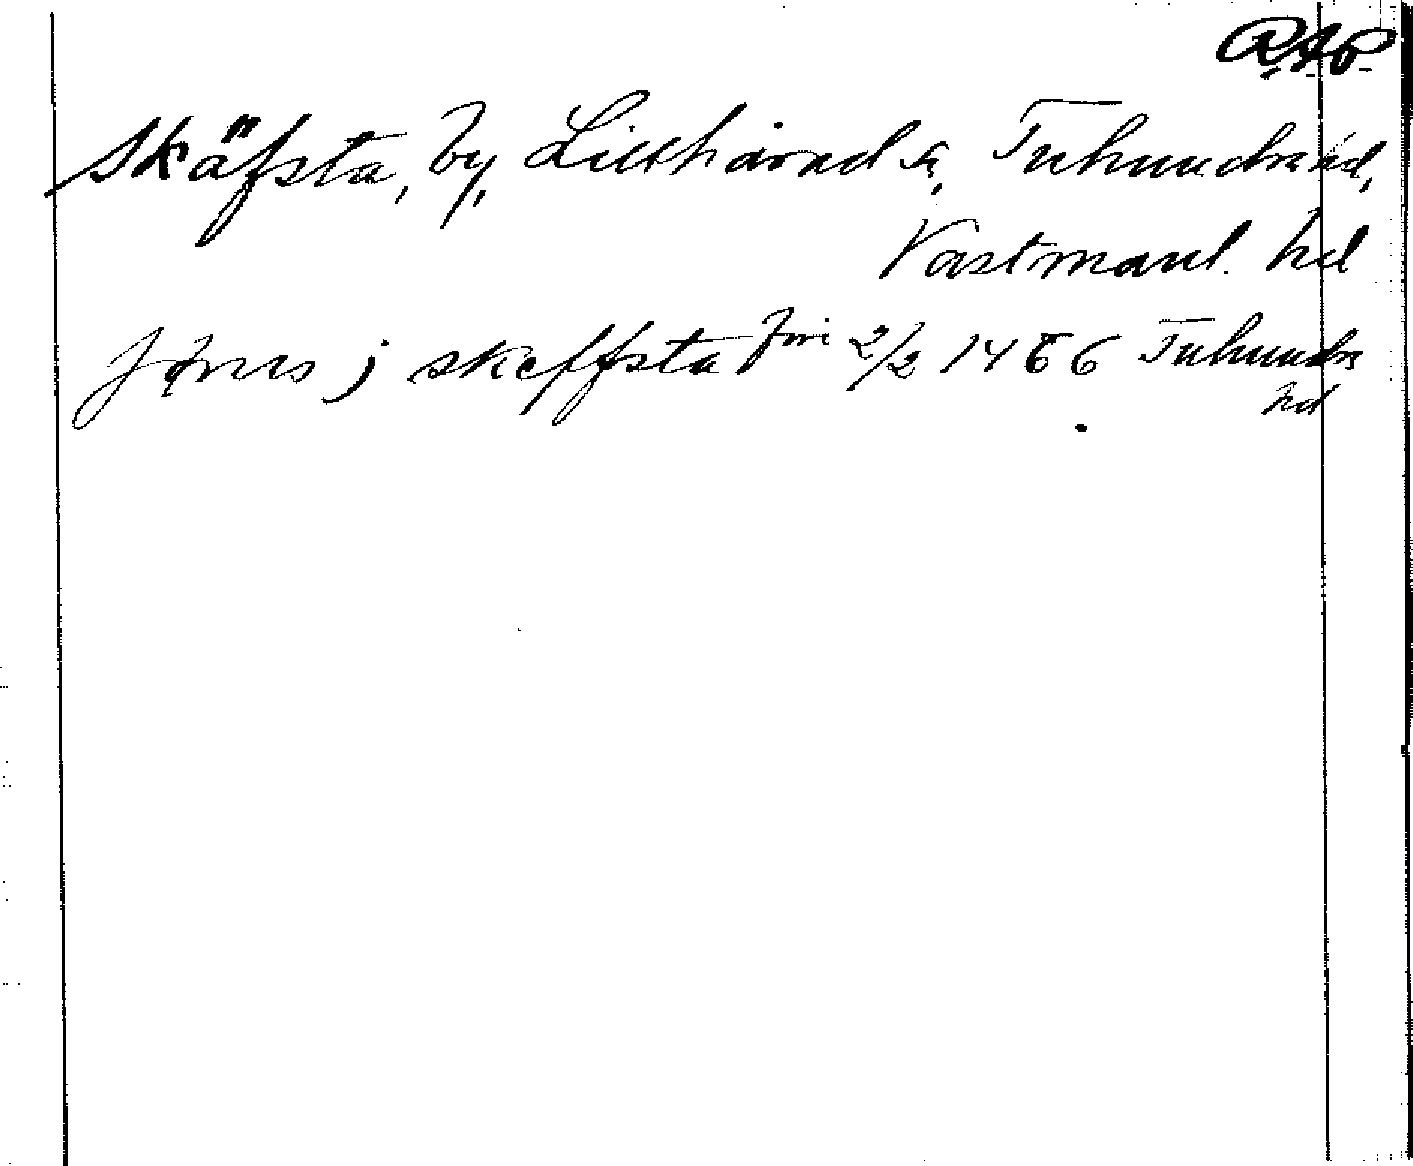 RAP
Skäfsta, by, Lillhärad sn, Tuhundra hd,
Västmanl. hd
Jønes j skeffsta 2/2 1466 Tuhundra
hd